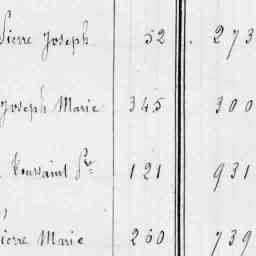 Pierre Joseph 52 . 273
Joseph Marie 345 300
Toussaint P.re 121 931
,
Pierre Marie 260 739